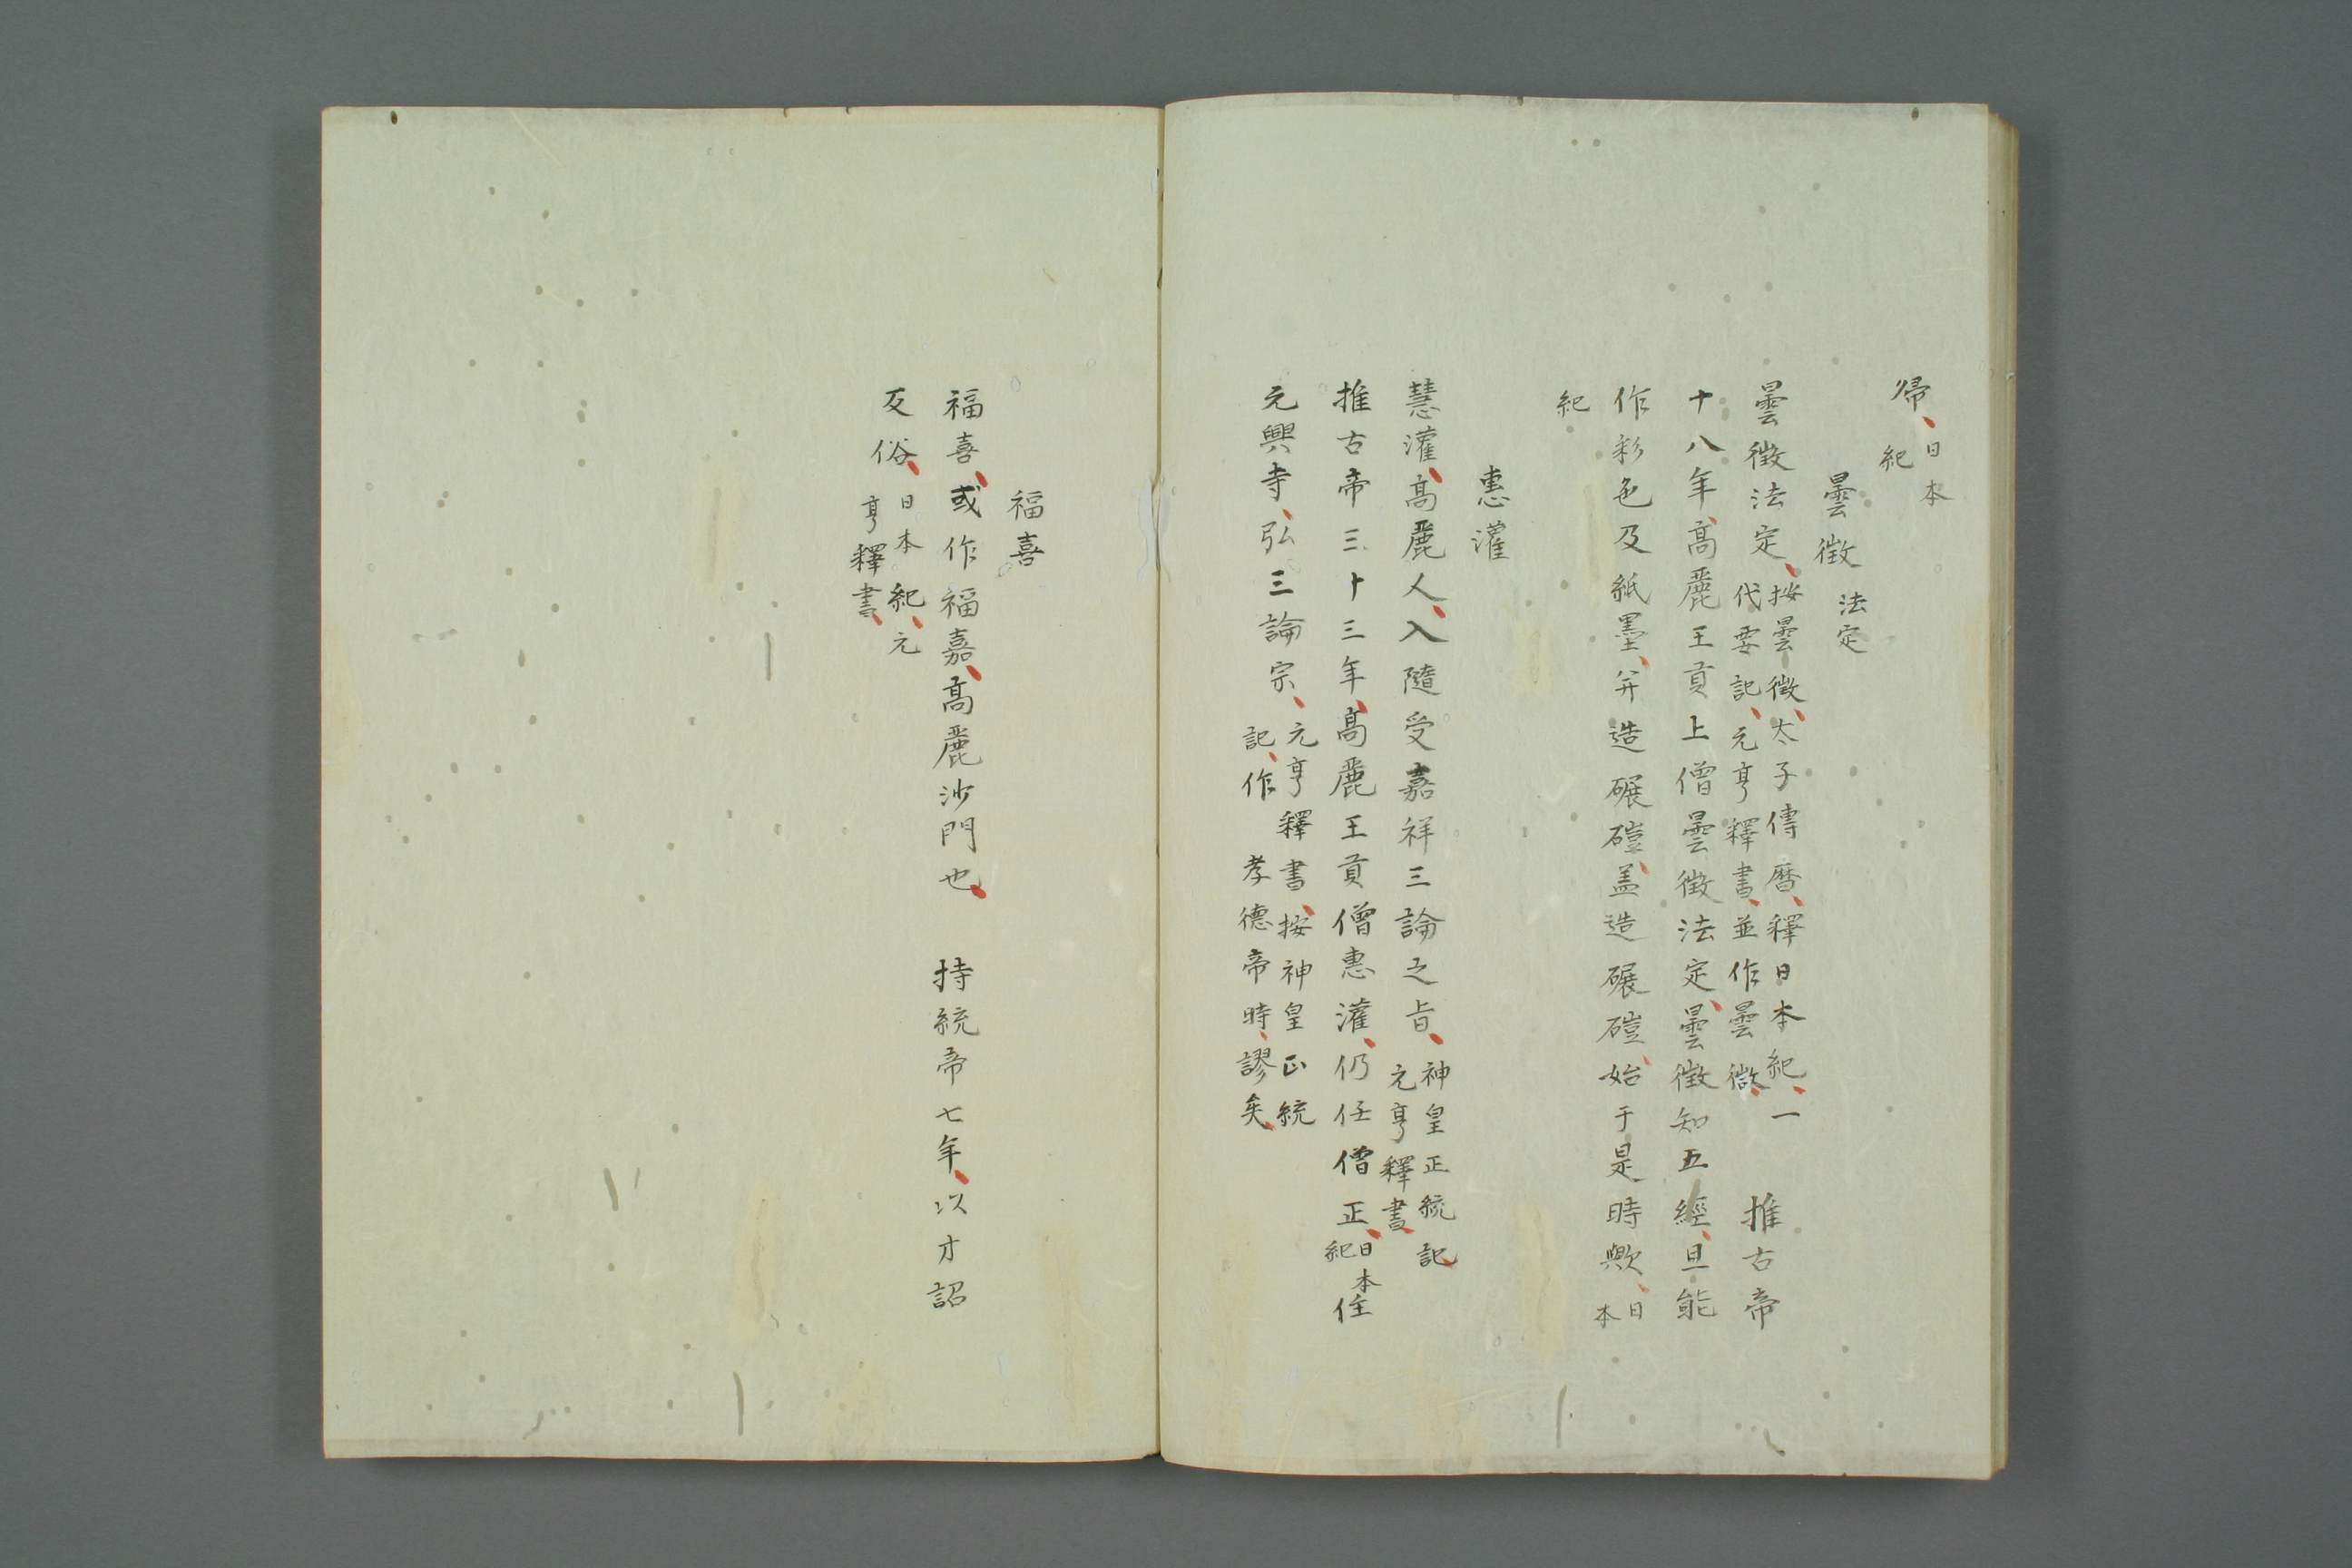 帰、日本紀
曇徴 法定
曇徴法定、按曇徴、太子傳暦、釋日本紀、一代要記、元亨釋書、並作曇微、 推古帝
十八年、高麗王貢上僧曇徴法定、曇徴知五經、且能
作彩色及紙墨、并造碾磑、盖造碾磑、始于是時歟、日本
紀
惠灌
慧灌、高麗人、入隨受嘉祥三論之旨、神皇正統記、元亨釋書、
推古帝三十三年、高麗王貢僧惠灌、仍任僧正、日本紀 住
元興寺、弘三論宗、元亨釋書、按神皇正統記、作孝德帝時、謬矣、
福喜
福喜、或作福嘉、高麗沙門也、 持統帝七年、以才詔
反俗、日本紀、元亨釋書、